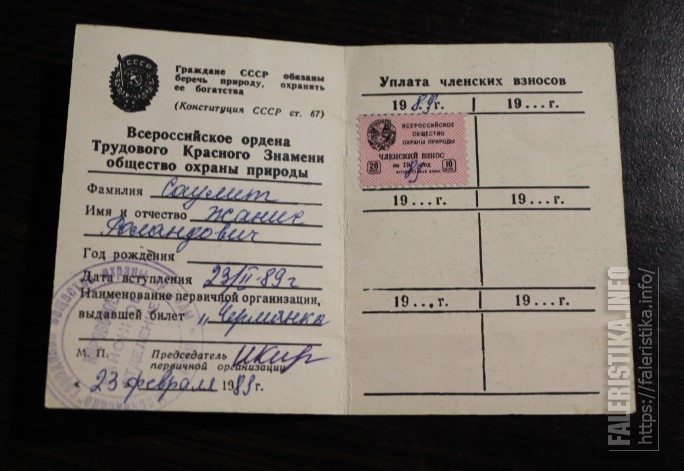 СССР
Граждане СССР обязаны
беречь природу, охранять
ее богатства
(Конституция СССР ст. 67)
Всероссийское ордена
Трудового Красного Знамени
общество охраны природы
Фамилия Саулит
Имя и отчество Жанис
Роландович
Год рождения
Дата вступления 23/II-89г
Наименование первичной организации,
выдавшей билет "Чермянка
М. П. Председатель
первичной организации
"23 февраля 1989г.
Уплата членских взносов
1989.г. 19...г.
ВСЕРОССИЙСКОЕ
ОБЩЕСТВО
ОХРАНЫ ПРИРОДЫ
ЧЛЕНСКИЙ ВЗНОС
20 на 1989 год 10
19...г. 19...г.
19...г. 19...г.
FALERISTIKA.INFO
https://faleristika.info/